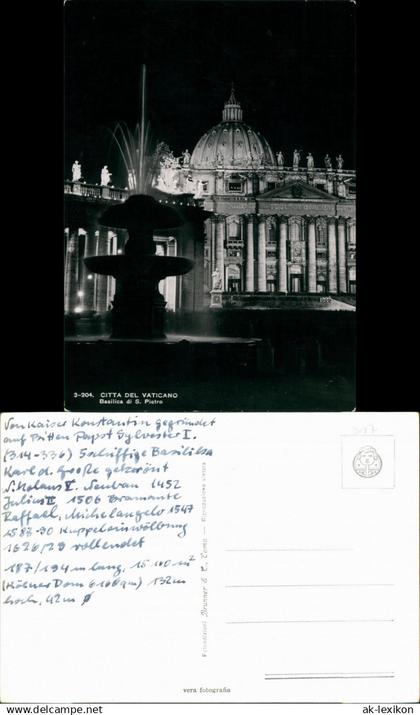 3-204. CITTA DEL VATICANO
Basilica di S. Pietro
Von Kaiser Konstantin gegründet
auf Bitten Papst Sylvester I.
(314-336) 5schiffige Basilika
Karl d. Große gekrönt
Nikolaus V. Neubau 1452
Julius II 1506 Bramante
Raffael, Michelangelo 1547
1587-90 Kuppeleinwölbung
1626/29 vollendet
187/194 m lang, 15 160 m²
(Kölner Dom 6166qm) 132m
hoch, 42m Ø
Fotoedizioni Brunner & C., Como — Riproduzione vietata
vera fotografia
© ak-lexikon
ak-lexikon.com